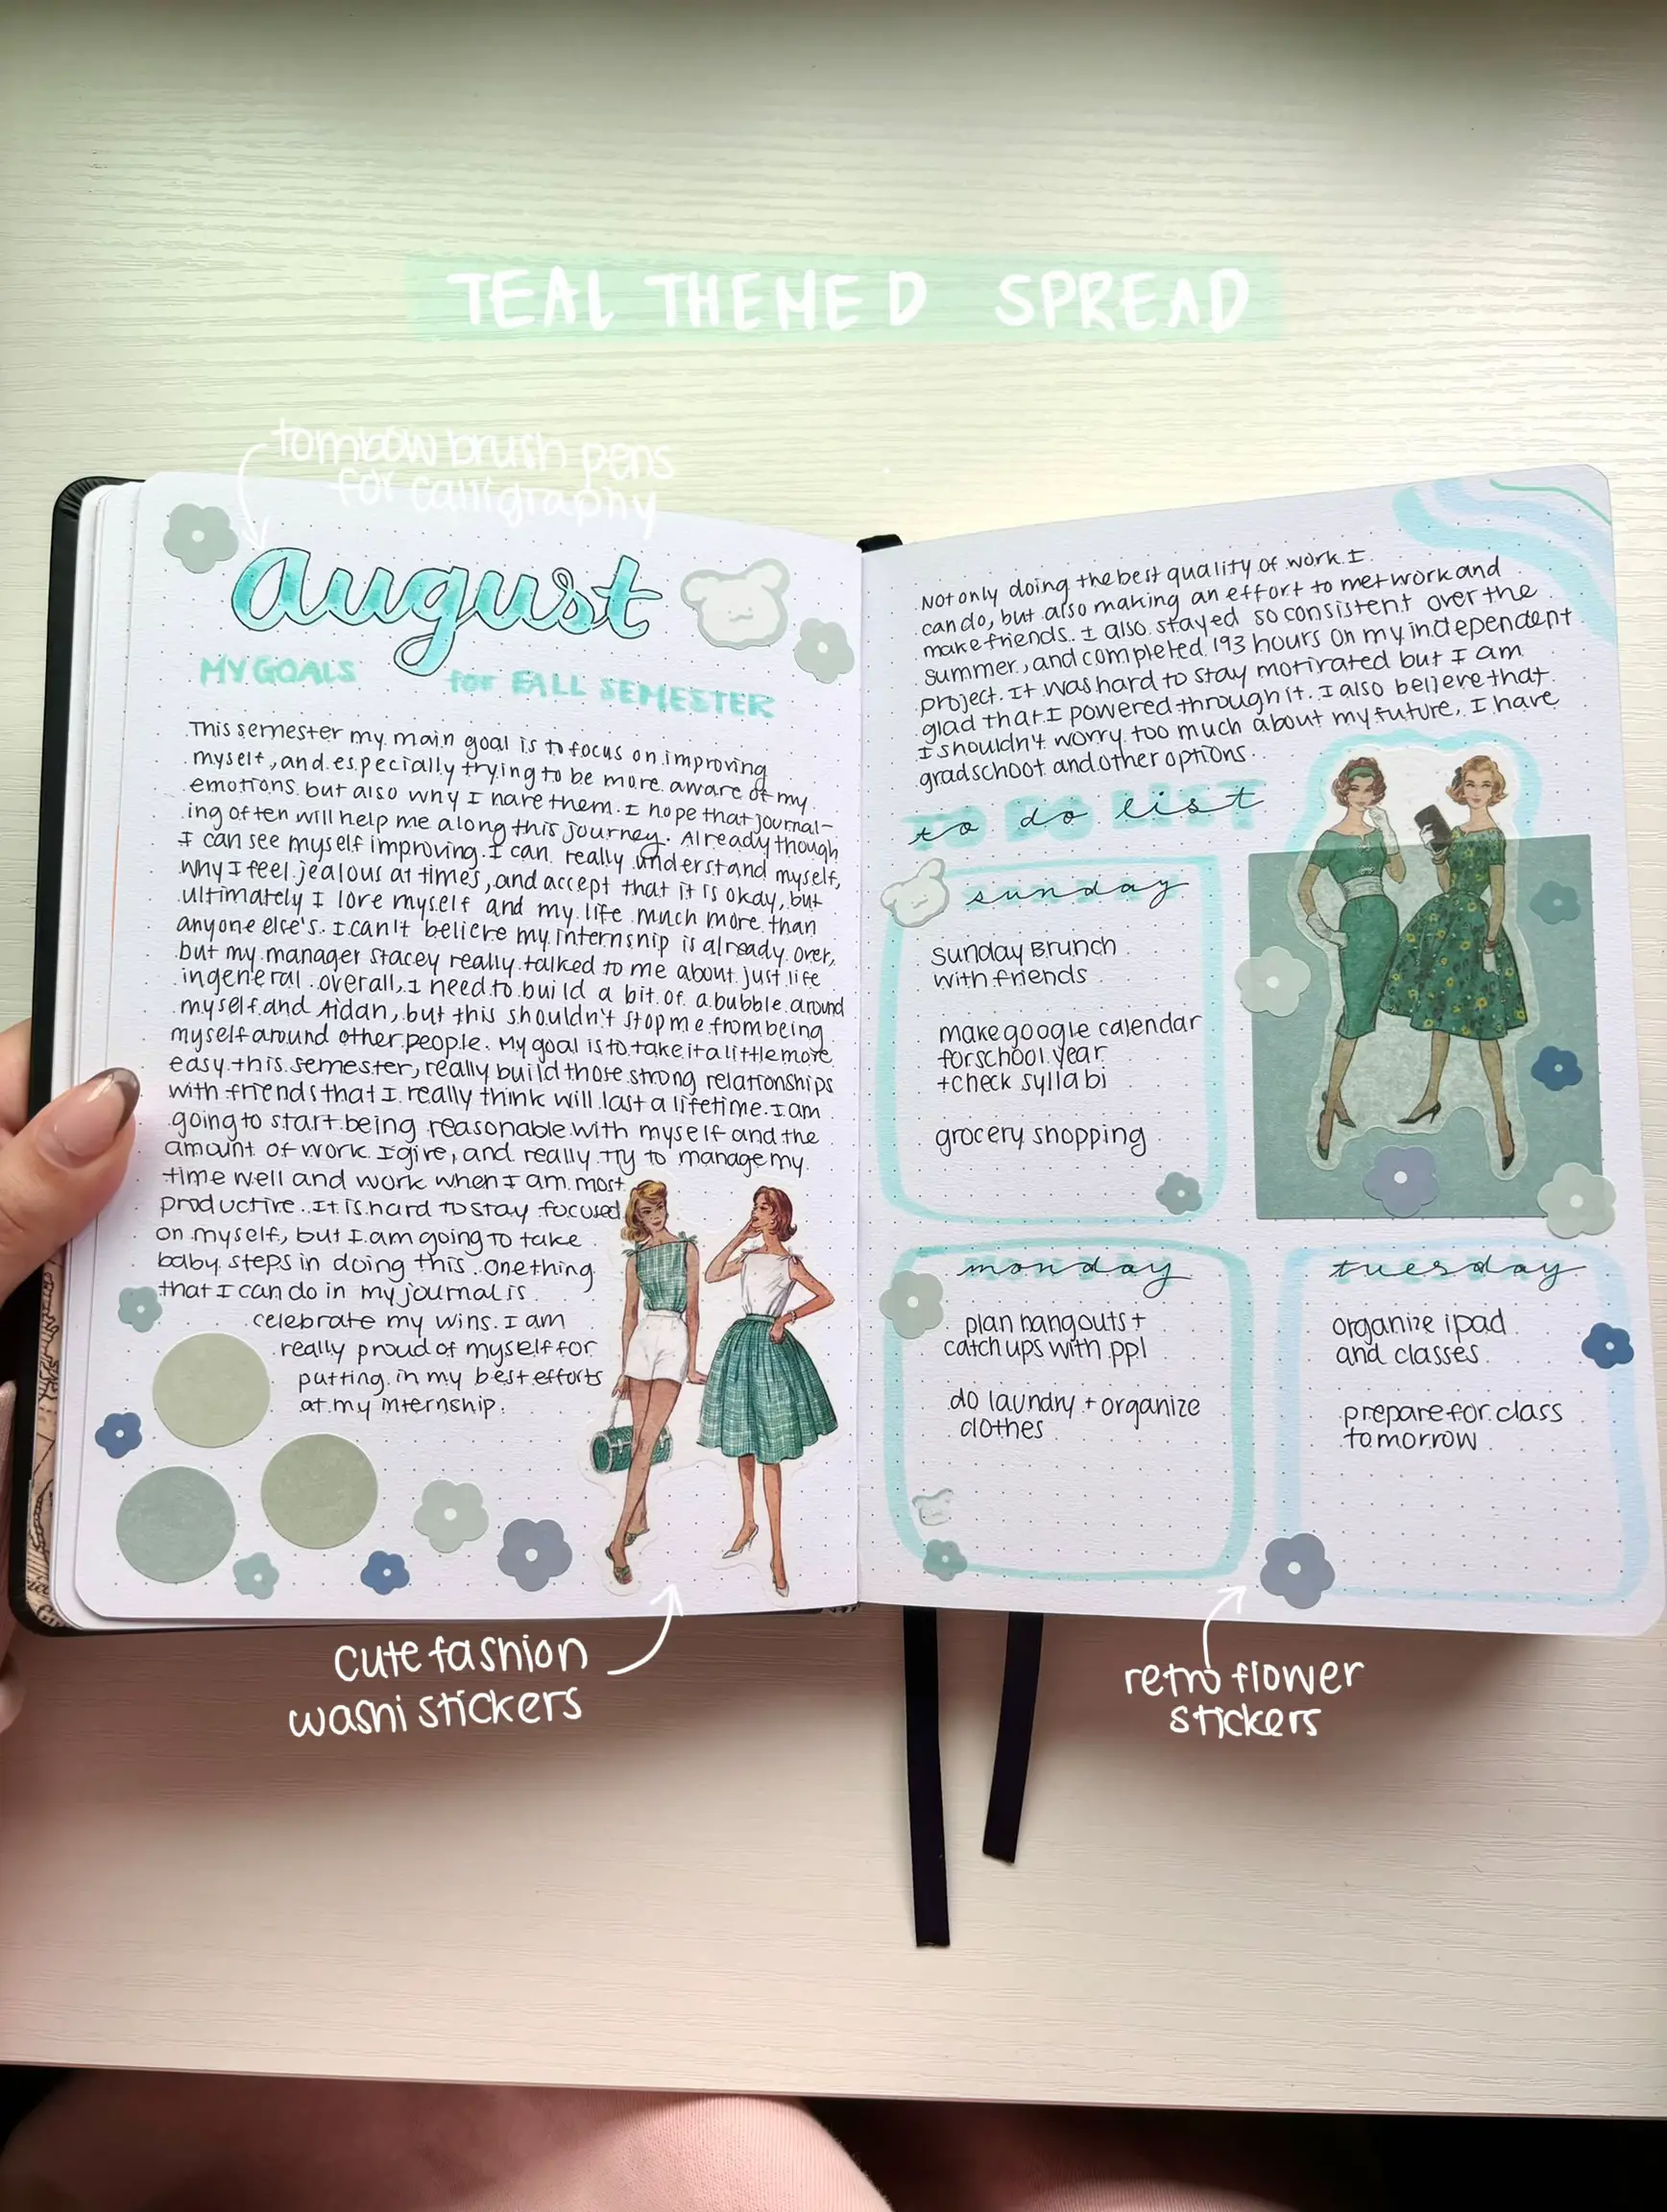 TEAL THEMED SPREAD
tombow brush pens
for calligraphy
august
MY GOALS for FALL SEMESTER
This semester my main goal is to focus on improving
myself, and especially trying to be more aware of my
emotions but also why I have them. I hope that journal-
ing often will help me along this journey. Already though
I can see myself improving. I can really understand myself,
why I feel jealous at times, and accept that it is okay, but
ultimately I love myself and my life much more than
anyone else's. I can't believe my internship is already over,
but my manager Stacey really talked to me about just life
in general. overall, I need to build a bit of a bubble around
myself and Aidan, but this shouldn't stop me from being
myself around other people. My goal is to take it a little more
easy this semester, really build those strong relationships
with friends that I really think will last a lifetime. I am
going to start being reasonable with myself and the
amount of work I give, and really try to manage my
time well and work when I am most
productive. It is hard to stay focused
on myself, but I am going to take
baby steps in doing this. One thing
that I can do in my journal is
celebrate my wins. I am
really proud of myself for
putting in my best efforts
at my internship.
Not only doing the best quality of work I
can do, but also making an effort to metwork and
make friends. I also stayed so consistent over the
summer, and completed 193 hours on my independent
project. It was hard to stay motivated but I am
glad that I powered through it. I also believe that
I shouldn't worry too much about my future, I have
grad school and other options.
to do list
sunday
Sunday Brunch
with friends
make google calendar
for school year
+ check syllabi
grocery shopping
monday
plan hangouts +
catch ups with ppl
do laundry + organize
clothes
tuesday
organize ipad
and classes
prepare for class
tomorrow
cute fashion
washi stickers
retro flower
stickers